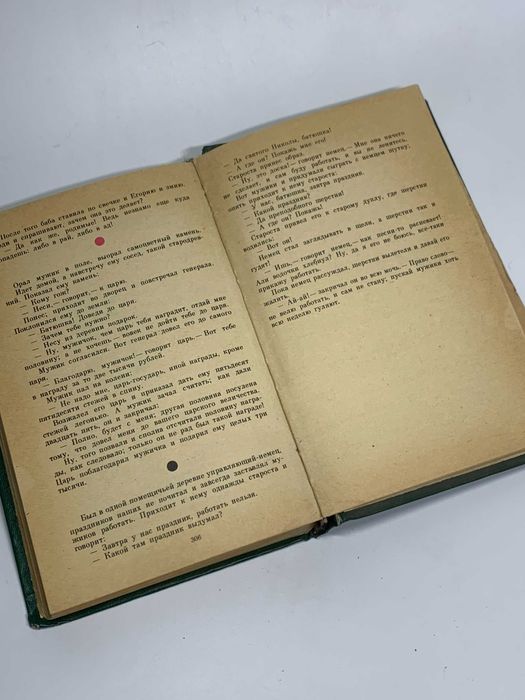 После того баба ставила по свечке и Егорию и змию.
и спрашивают, зачем она это делает?
— Да как же, родимые! Ведь незнамо еще куда
попадешь: либо в рай, либо в ад!
Орал мужик в поле, выорал самоцветный камень.
Идет домой, а навстречу ему сосед, такой стародрев-
ний. Показал ему камень.
— Кому гож?
— Неси,— говорит,— к царю.
Понес; приходит во дворец и повстречал генерала.
Поклонился ему до земли:
— Батюшка! Доведи до царя.
— Зачем тебе нужно?
— Несу из деревни подарок.
— Ну, мужичок, чем царь тебя наградит, отдай мне
половину; а не хочешь — вовек не дойти тебе до царя.
Мужик согласился. Вот генерал довел его до самого
царя.
— Благодарю, мужичок!— говорит царь.— Вот тебе
в награду за то две тысячи рублей.
Мужик пал на колени:
— Не надо мне, царь-государь, иной награды, кроме
пятидесяти стежей в спину.
Возжалел его царь и приказал дать ему пятьдесят
стежей легонько. А мужик зачал считать; как дали
двадцать пять, он и закричал:
— Полно, будет с меня; другая половина посулена
тому, что довел меня до вашего царского величества.
Ну, того позвали и сполна отсчитали половину награ-
ды, как следовало; только он не рад был такой награде!
Царь поблагодарил мужичка и подарил ему целых три
тысячи.
Был в одной помещичьей деревне управляющий-немец,
праздников наших не почитал и завсегда заставлял му-
жиков работать. Приходит к нему однажды староста и
говорит:
— Завтра у нас праздник, работать нельзя.
— Какой там праздник выдумал?
306
— Да святого Николы, батюшка!
— А где он? Покажь мне его!
Староста принес образ.
— Ну, это доска!— говорит немец.— Мне она ничего
не сделает, и сам буду работать, и вы не ленитесь.
Вот мужики и придумали сыграть с немцем шутку;
опять приходит к нему староста:
— У нас, батюшка, завтра праздник.
— Какой праздник?
— Да преподобного шерстня!
— А где он? Покажь!
Староста привел его к старому дуплу, где шерстни
водились:
— Вот он!
Немец стал заглядывать в щели, а шерстни так и
гудят!
— Ишь,— говорит немец,— как песни-то распевает!
Али водочки хлебнул? Ну, да я его не боюсь, все-таки
прикажу работать.
Пока немец рассуждал, шерстни вылетели и давай его
жалить.
— Ай-ай!— закричал он во всю мочь.— Право слово—
не велю работать, и сам не стану; пускай мужики хоть
всю неделю гуляют.